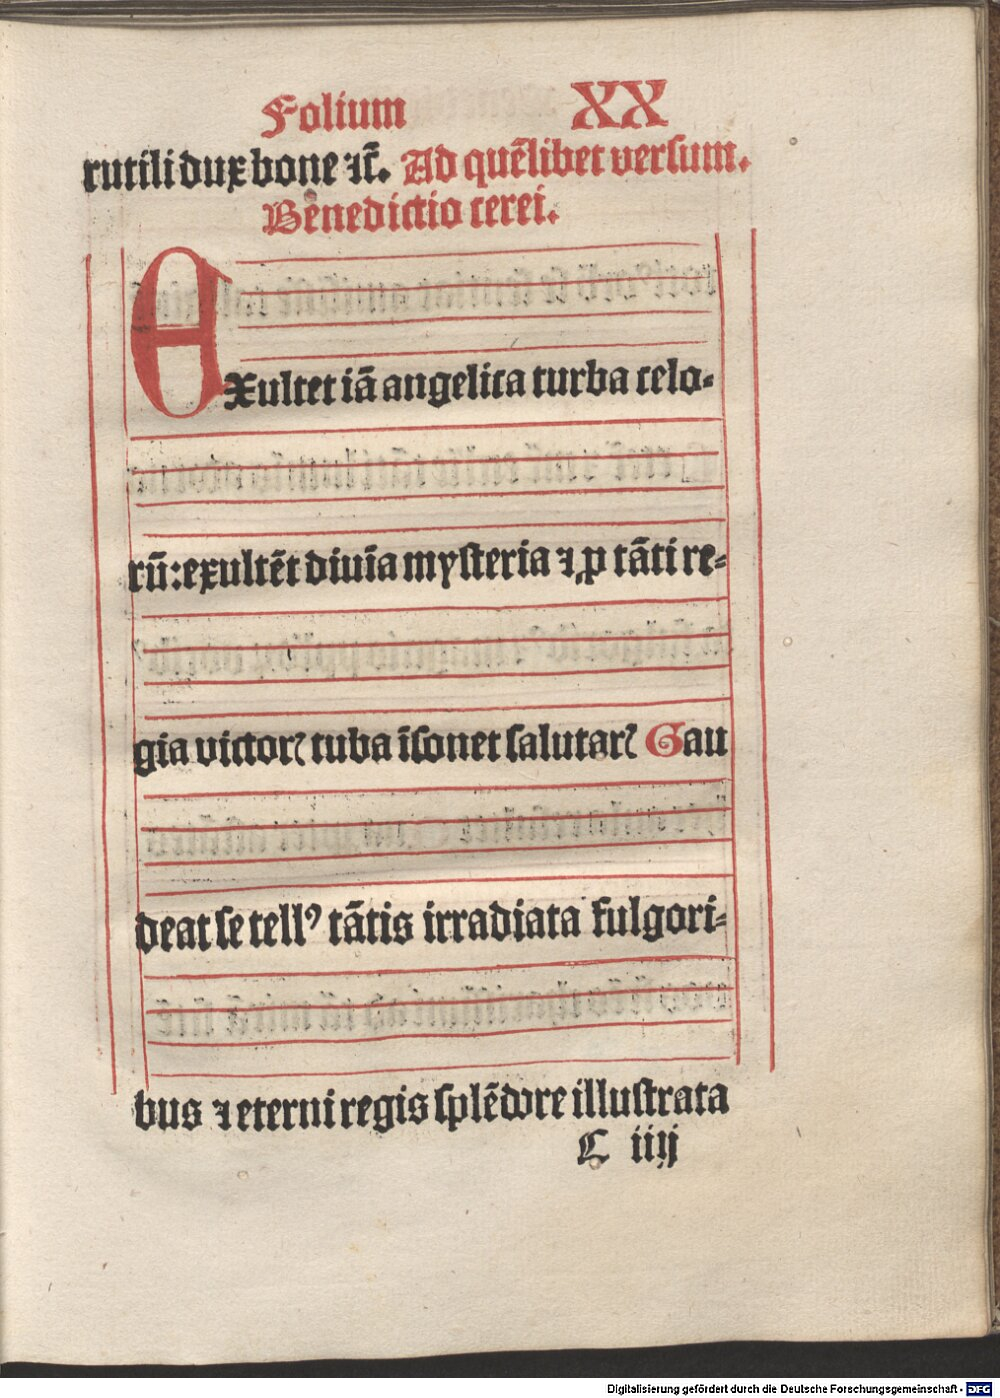 Folium XX
rutili dux bone ⁊c̄. Ad quēlibet versum.
Benedictio cerei.
EXultet iā angelica turba celo-
rū: exultēt diuīa mysteria ⁊ ꝓ tāti re-
gia victorꝭ tuba īsonet salutarꝭ Gau
deat se tellꝰ tātis irradiata fulgori-
bus ⁊ eterni regis splēdore illustrata
C iiij
Digitalisierung gefördert durch die Deutsche Forschungsgemeinschaft - DFG